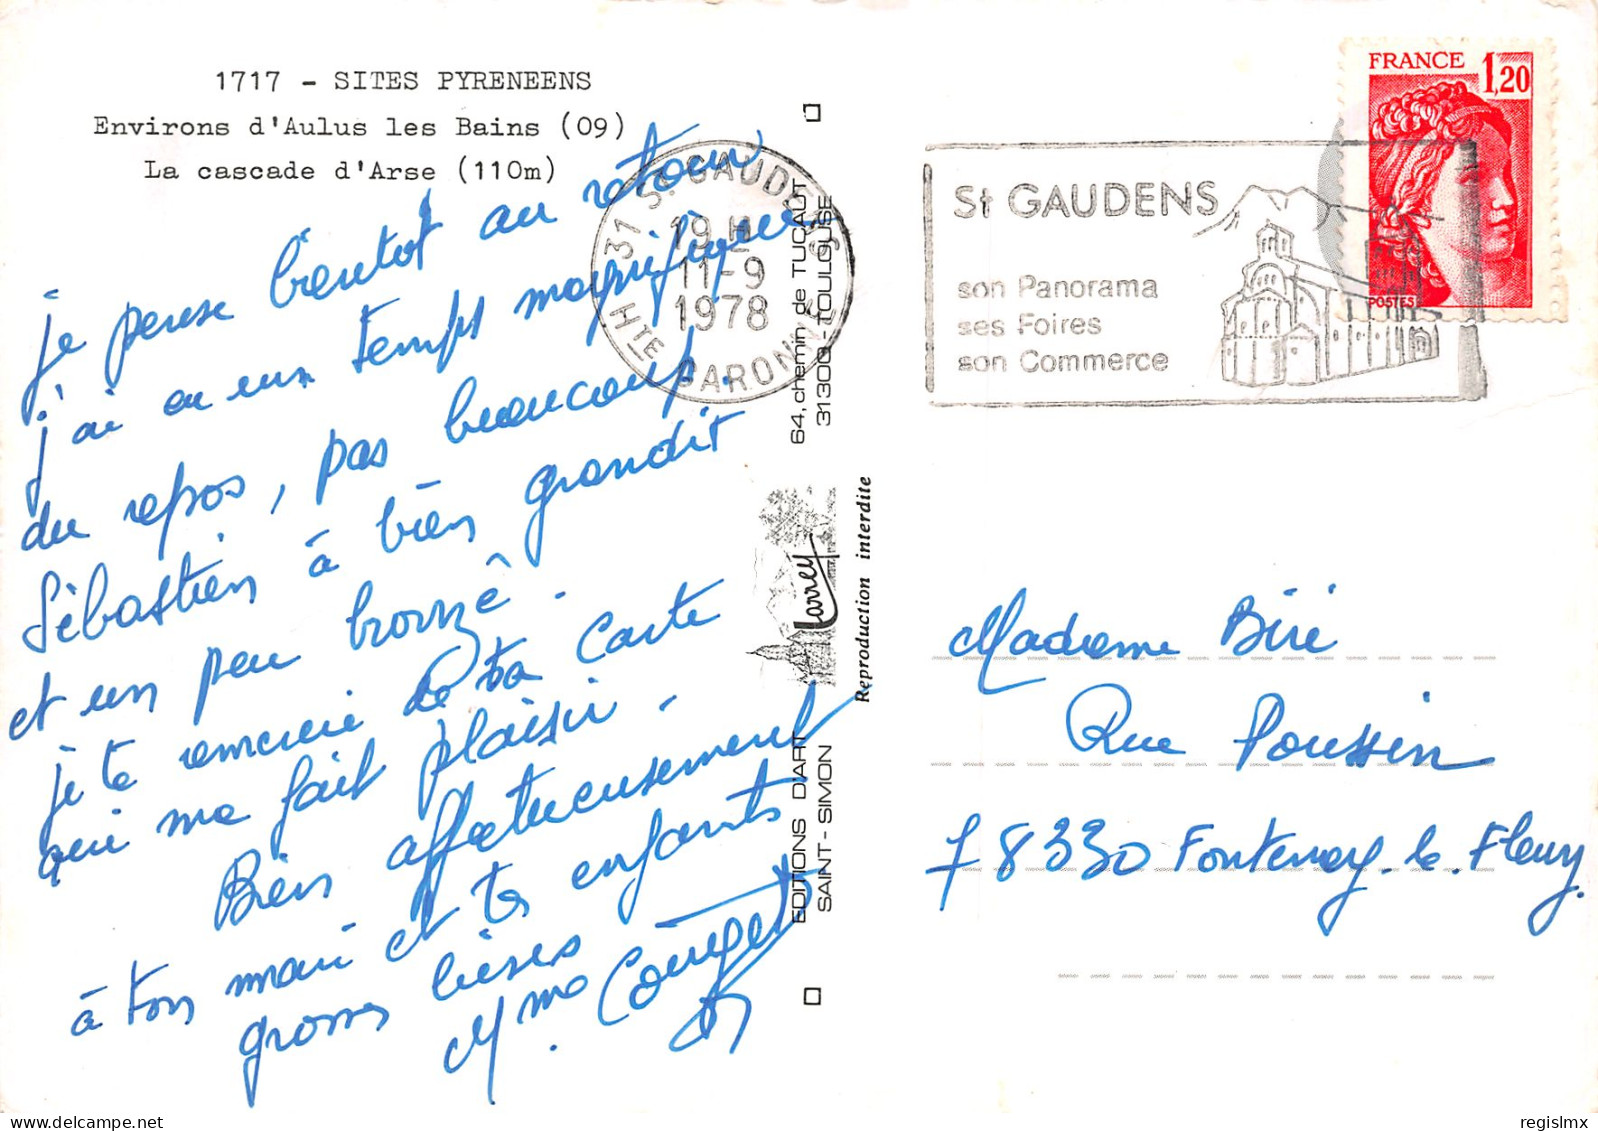 1717 - SITES PYRENEENS
Environs d'Aulus les Bains (09)
La cascade d'Arse (110m)
je pense bientot au retour
j'ai eu un temps magnifique
du repos, pas beaucoup.
Sébastien à bien grandit
et un peu bronzê.
je te remercie de ta Carte
qui me fait plaisir.
Bien affectueusement
à ton mari et tes enfants
grosses bises
Mme Couget
31 St GAUDENS
19 H
11-9
1978
Hte GARONNE
64, chemin de TUCAUT
31300 TOULOUSE
Larrey
Reproduction interdite
EDITIONS D'ART
SAINT-SIMON
St GAUDENS
son Panorama
ses Foires
son Commerce
FRANCE 1,20
POSTES
Madame Biré
Rue Poussin
78330 Fontenay.le.Fleury.
delcampe.net
regislmx